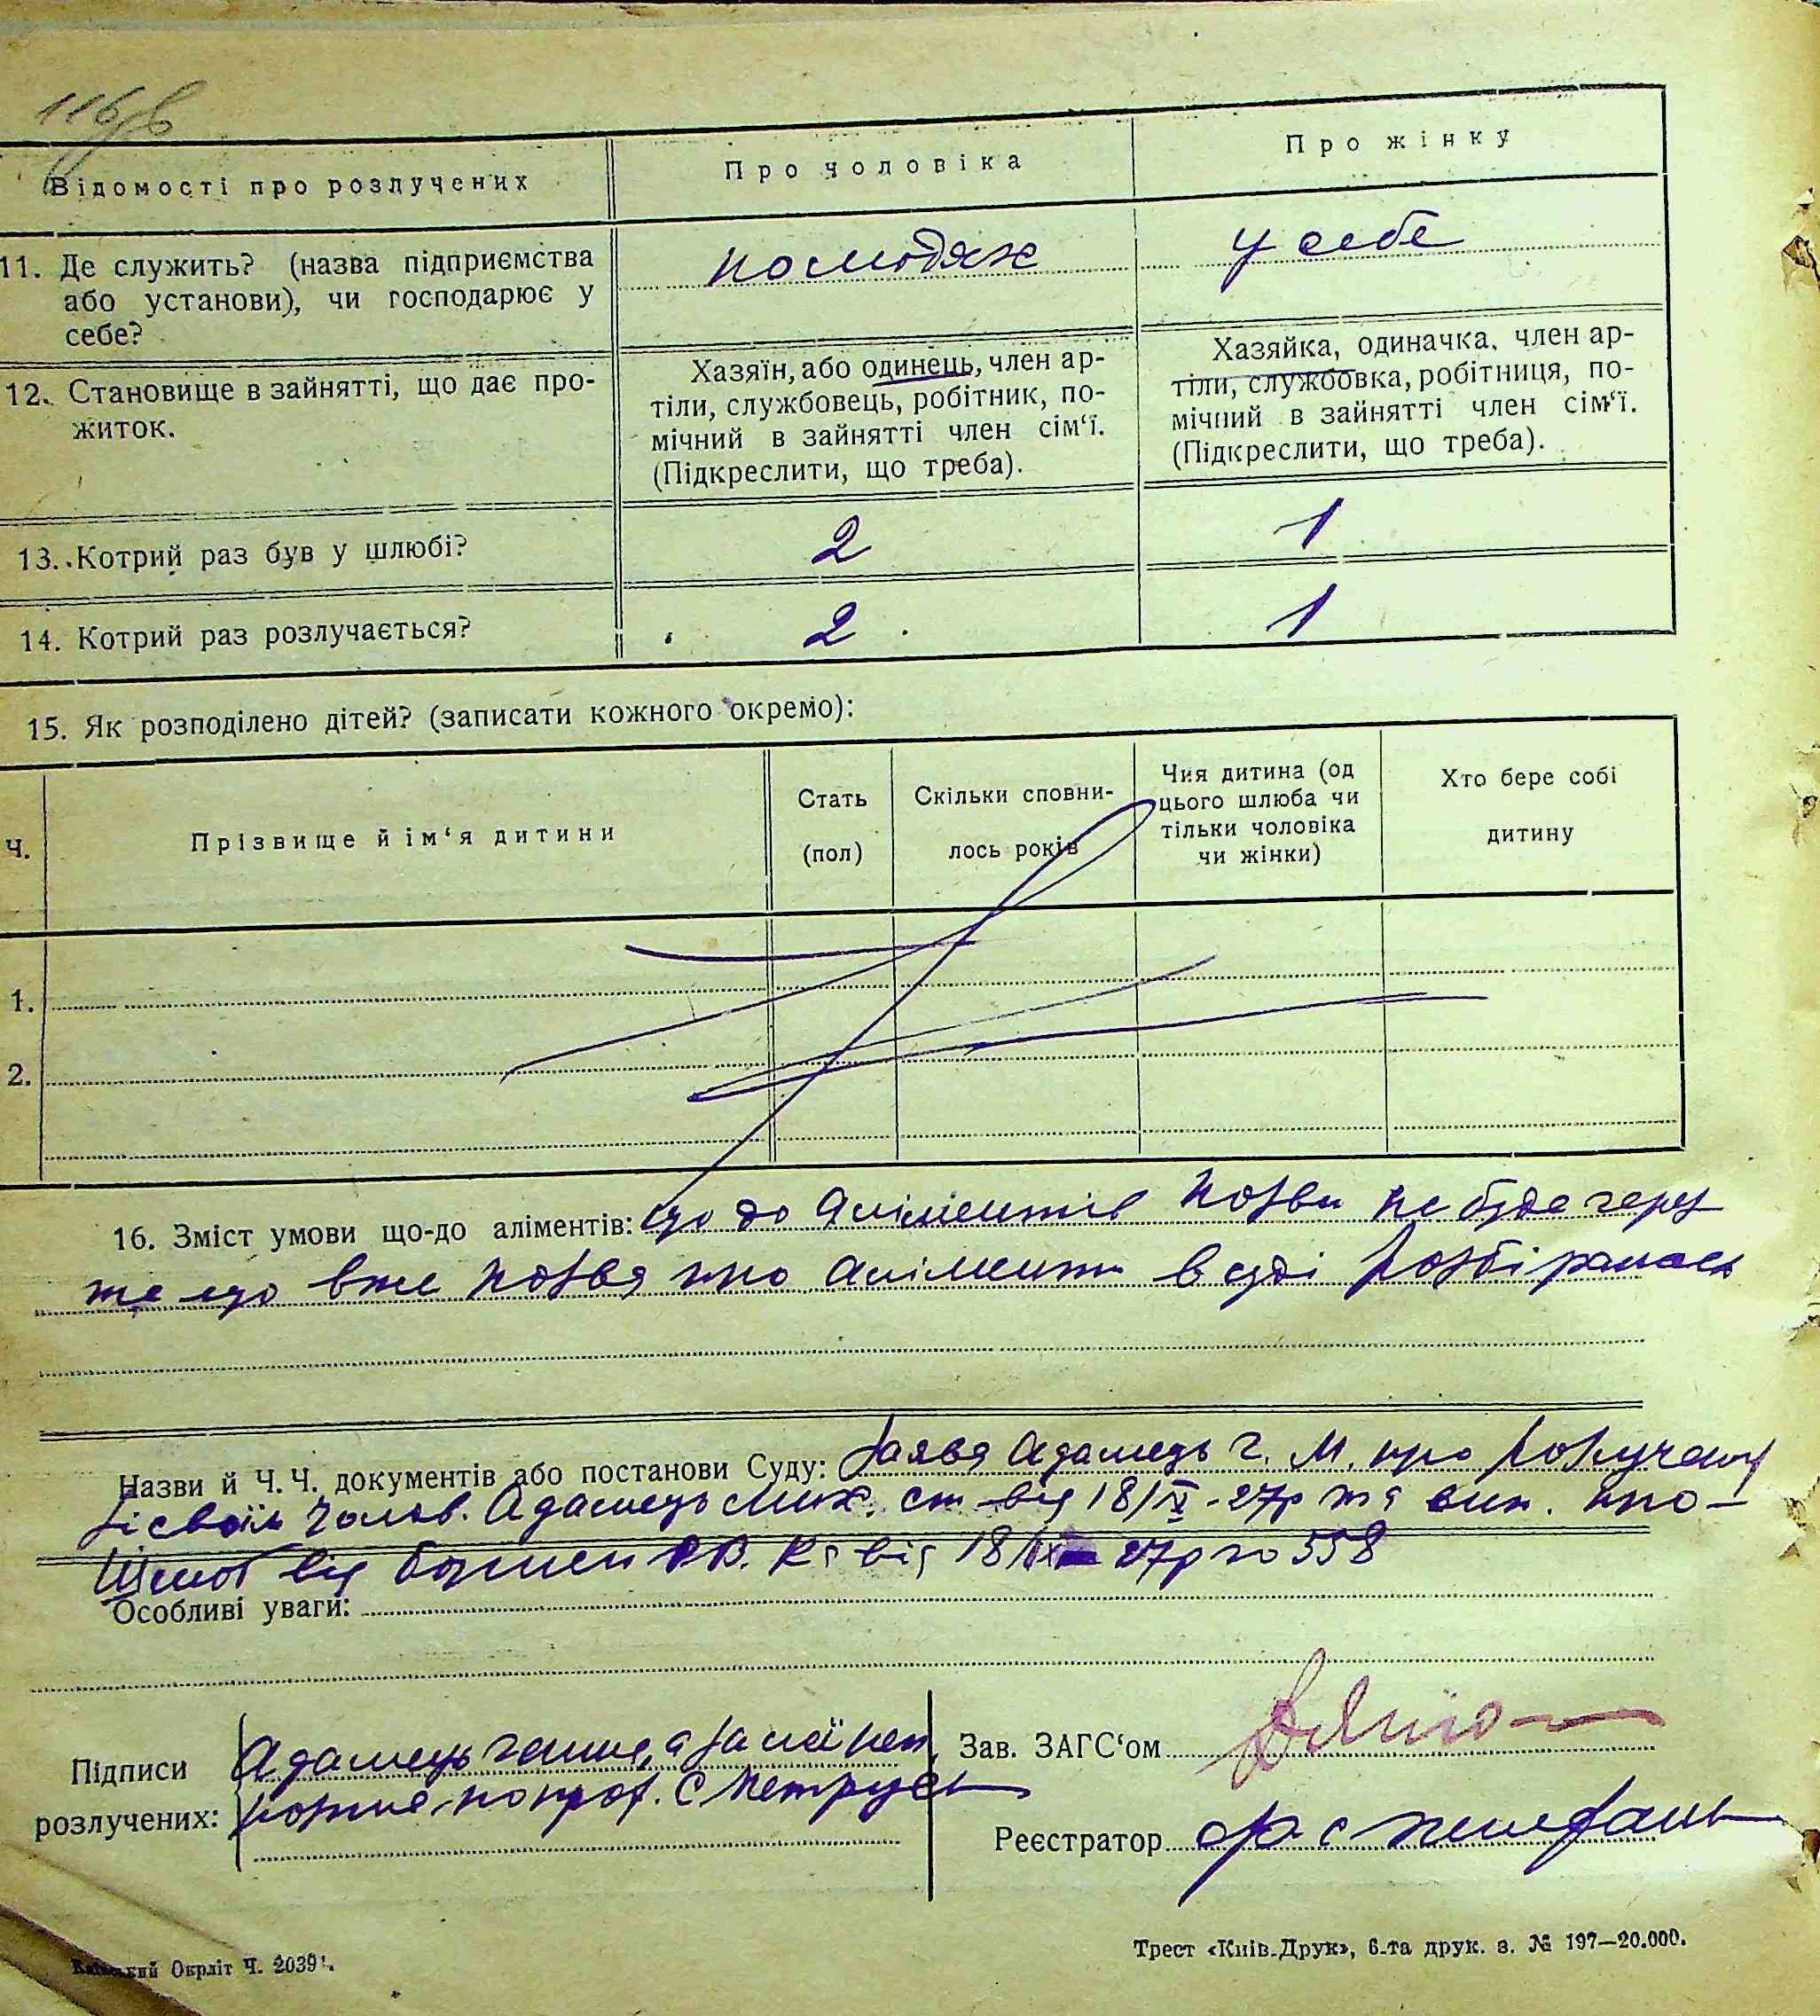 116/в
Відомості про розлучених
Про чоловіка
Про жінку
11. Де служить? (назва підприємства
або установи), чи господарює у
себе?
по людях
у себе
12. Становище в зайнятті, що дає про-
житок.
Хазяїн, або одинець, член ар-
тіли, службовець, робітник, по-
мічний в зайнятті член сім‘ї.
(Підкреслити, що треба).
Хазяйка, одиначка, член ар-
тіли, службовка, робітниця, по-
мічний в зайнятті член сім‘ї.
(Підкреслити, що треба).
13. Котрий раз був у шлюбі?
2
1
14. Котрий раз розлучається?
2
1
15. Як розподілено дітей? (записати кожного окремо):
Ч.
Прізвище й ім‘я дитини
Стать
(пол)
Скільки сповни-
лось років
Чия дитина (од
цього шлюба чи
тільки чоловіка
чи жінки)
Хто бере собі
дитину
1.
2.
16. Зміст умови що-до аліментів: що до аліментів позви не буде через
те що вже позва про аліменти в суді розбіралась
Назви й Ч.Ч. документів або постанови Суду: Заява Адамець Г. М. про
зі своїм чолов. Адамець Мих. від 18/IX-27р та вип. про
від 18/IX 27р за 558
Особливі уваги:
Підписи
розлучених:
Адамець а за неї неп.
по проз. С Петрусь
Зав. ЗАГС‘ом
Реєстратор
Київський Окрліт Ч. 2039.
Трест «Київ-Друк», 6-та друк. з. № 197—20.000.